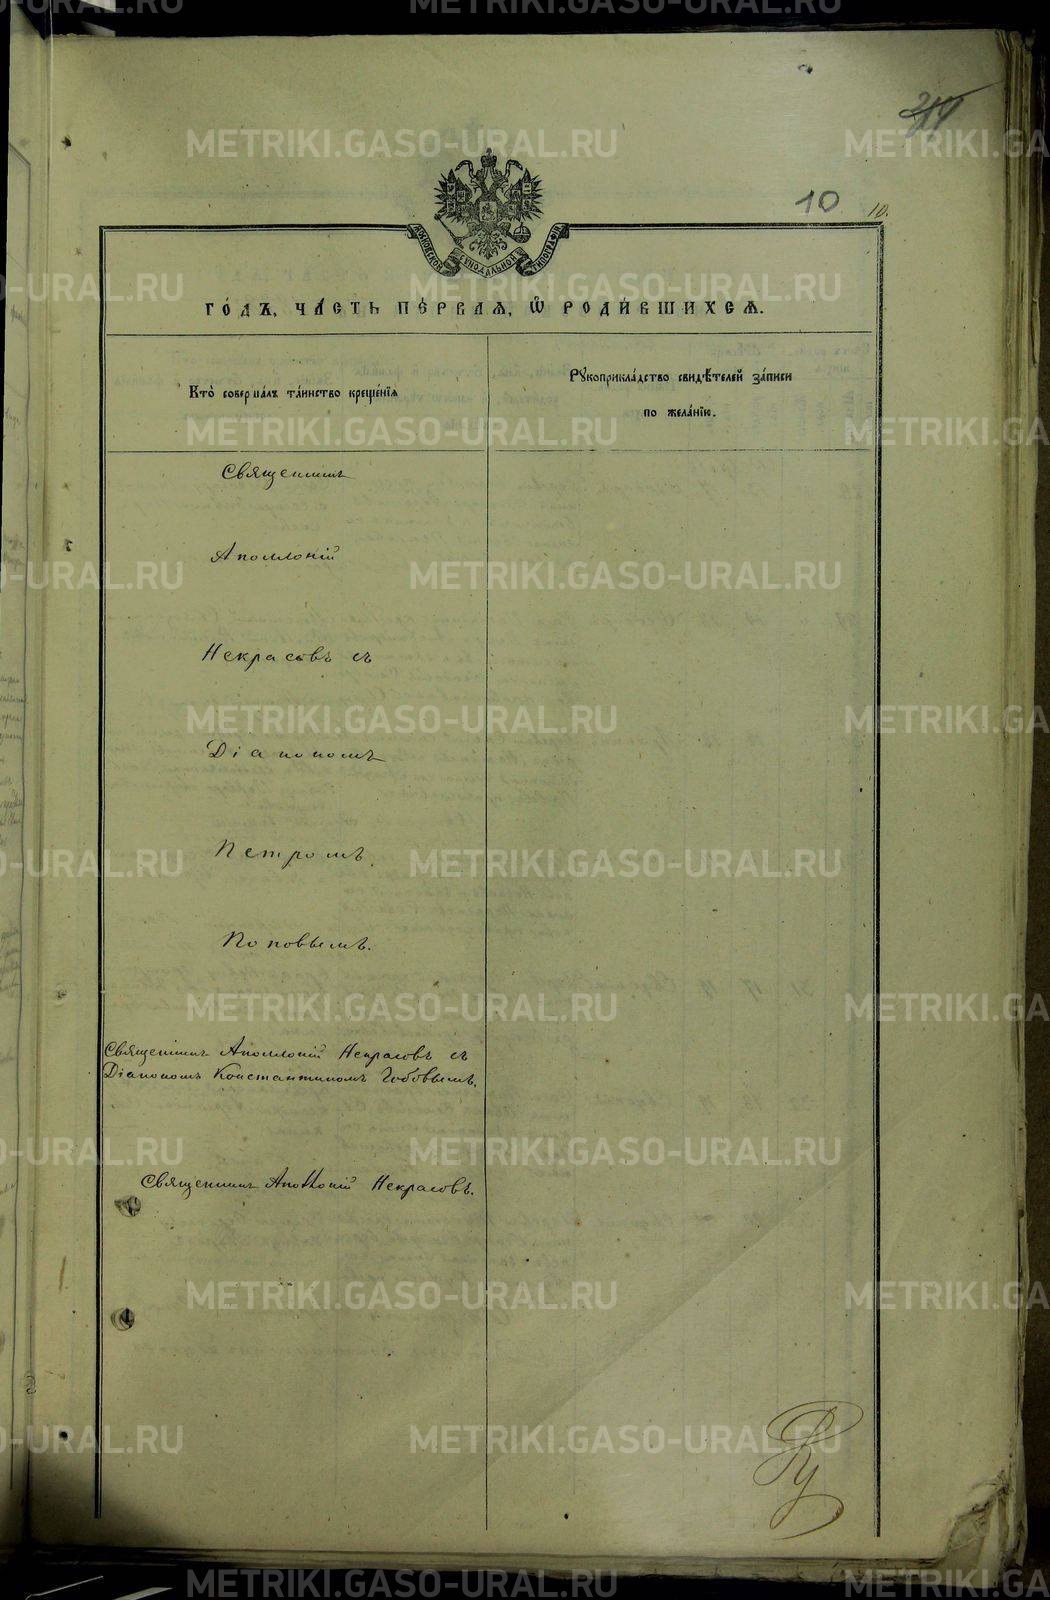 10
10.
МОСКОВСКОЙ СУНОДАЛЬНОЙ ТИПОГРАФІИ
ГО́ДЪ, ЧА́СТЬ ПЕ́РВАЯ, Ѡ РОДИ́ВШИХСЯ.
Кто̀ соверша́лъ та́инство креще́нїя
Рꙋкоприкла́дство свидѣ́телей за́писи
по жела́нїю.
Священникъ
Аполлоній
Некрасовъ съ
Діакономъ
Петромъ
Поповымъ.
Священникъ Аполлоній Некрасовъ съ
Діакономъ Константиномъ
Священникъ Аполлоній Некрасовъ.
METRIKI.GASO-URAL.RU